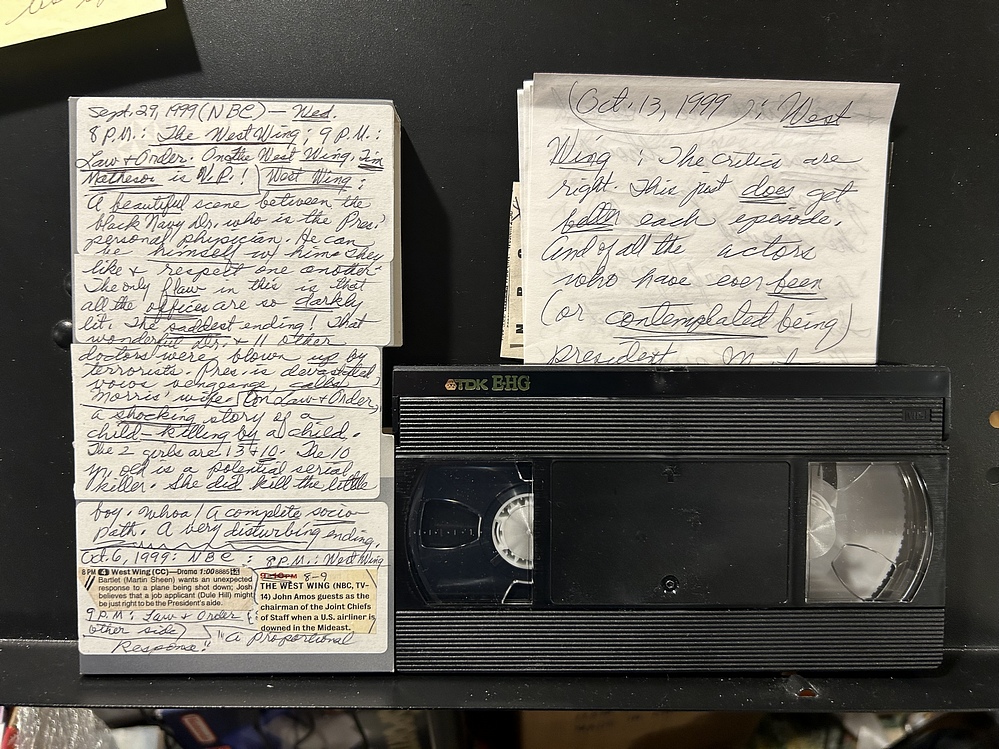 Sept. 29, 1999 (NBC) — Wed.
8 P.M.: The West Wing; 9 P.M.:
Law + Order. On the West Wing, Tim
Matheson is V.P.! West Wing:
A beautiful scene between the
black Navy Dr. who is the Pres.'
personal physician. He can
be himself w/ him + they
like + respect one another.
The only flaw in this is that
all the offices are so darkly
lit. The saddest ending! That
wonderful Dr. + 11 other
doctors were blown up by
terrorists. Pres. is devastated
vows vengeance, calls
Morris' wife. On Law + Order,
a shocking story of a
child-killing by a child.
The 2 girls are 13 + 10. The 10
yr. old is a potential serial
killer. She did kill the little
boy. Whoa! A complete socio-
path. A very disturbing ending.
Oct. 6, 1999: NBC: 8 P.M.: West Wing
8 PM 4 West Wing (CC)—Drama 1:00
Bartlet (Martin Sheen) wants an unexpected
response to a plane being shot down; Josh
believes that a job applicant (Dule Hill) might
be just right to be the President's side.
8-9
THE WEST WING (NBC, TV-
14) John Amos guests as the
chairman of the Joint Chiefs
of Staff when a U.S. airliner is
downed in the Mideast.
9 P.M: Law + Order
other side) "A Proportional
Response"
(Oct. 13, 1999): West
Wing: The critics are
right. This just does get
better each episode.
And of all the actors
who have ever been
(or contemplated being)
president
TDK E-HG